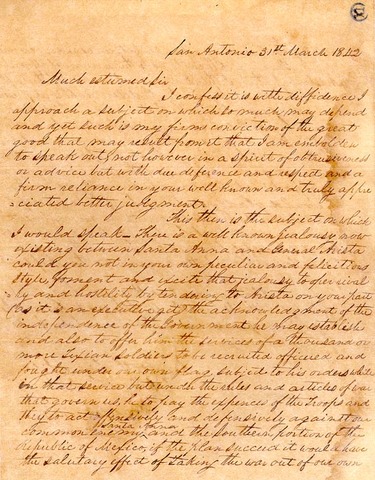 San Antonio 31st March 1842
Much esteemed Sir
I confess it is with diffidence I
approach a subject on which so much may depend
and yet such is my firm conviction of the great
good that may result from it that I am embolden
to speak out, not however in a spirit of obtrusiveness
or advice but with due deference and respect and a
firm reliance in your well known and truly appre
ciated better judgment.
This then is the subject on which
I would speak – There is a well known jealousy now
existing between Santa Anna and General Arista
could you not in your own peculiar and felicitous
style, foment and excite that jealousy to open rival
ry and hostility by tendering to Arista on your part
(as it is an executive act) the acknowledgment of the
independence of the Government he may establish
and also to offer him the services of a thousand or
more Texian soldiers to be recruited officered and
fought under our own flag, subject to his orders while
in that service but under the rules and articles of war
that govern us, he to pay the expences of the troops and
they to act offensively and defensively against our
common enemy Santa Anna and the Southern portion of the
Republic of Mexico, if the plan succeed it would have
the salutary effect of taking the war out of our own